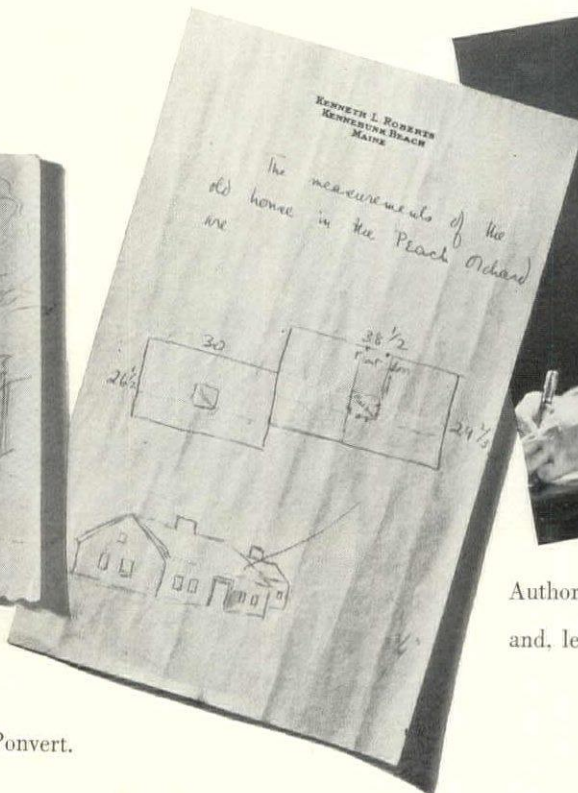 KENNETH L. ROBERTS
KENNEBUNK BEACH
MAINE
The measurements of the
old house in the Peach Orchard
are
30
38 1/2
26 1/2
Author
and, le
Ponvert.